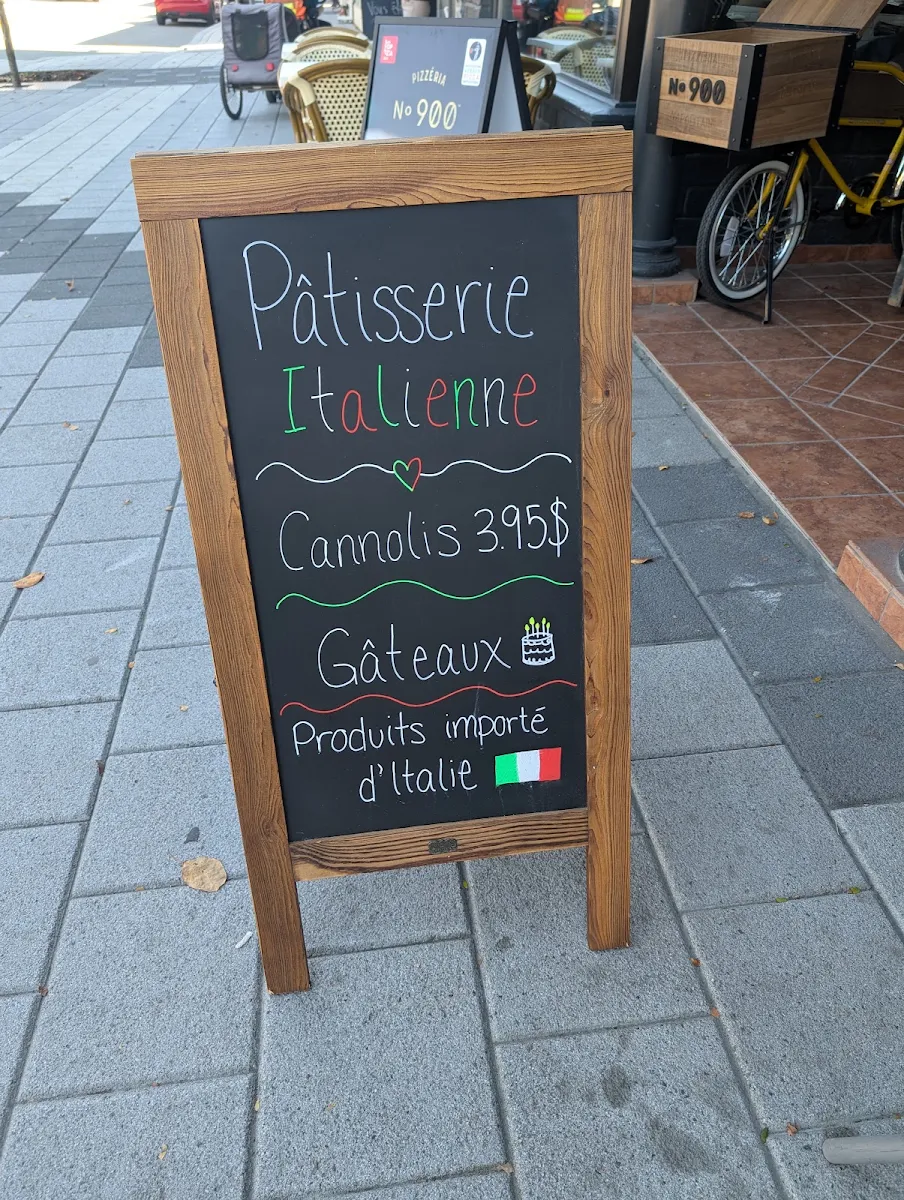 PIZZÉRIA
No 900
No 900
Pâtisserie
Italienne
Cannolis 3.95$
Gâteaux
Produits importé
d'Italie